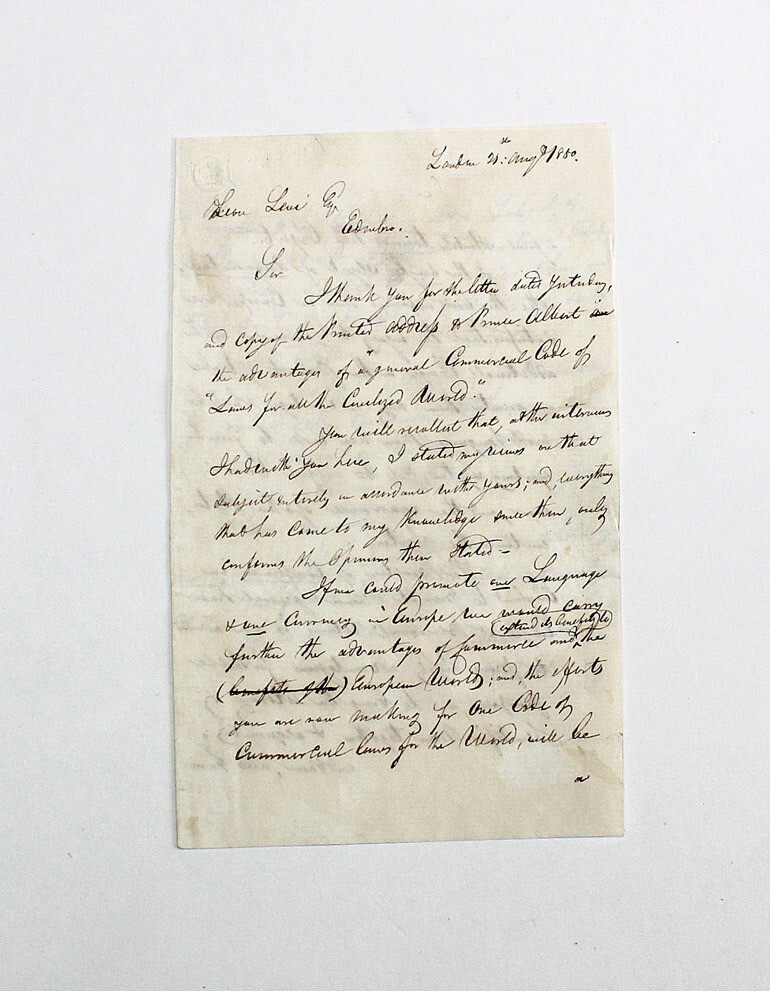 London 21st Augt 1850.
Leone Levi Esqr
Edinbro.
Sir
I thank you for the letter dated yesterday,
and copy of the Printed address to Prince Albert on
the advantages of a "general Commercial Code of
"Laws for all the Civilized World."
You will recollect that, at the interview
I had with you here, I stated my views on that
subject, entirely in accordance with yours; and, everything
that has come to my Knowledge since then, only
confirms the Opinions then stated –
If we could promote one Language
& one Currency in Europe we would carry
extend its benefits to
further the advantages of Commerce and the
(benefits of the) European World; and, the efforts
you are now making for One Code of
Commercial laws for the World, will be
a